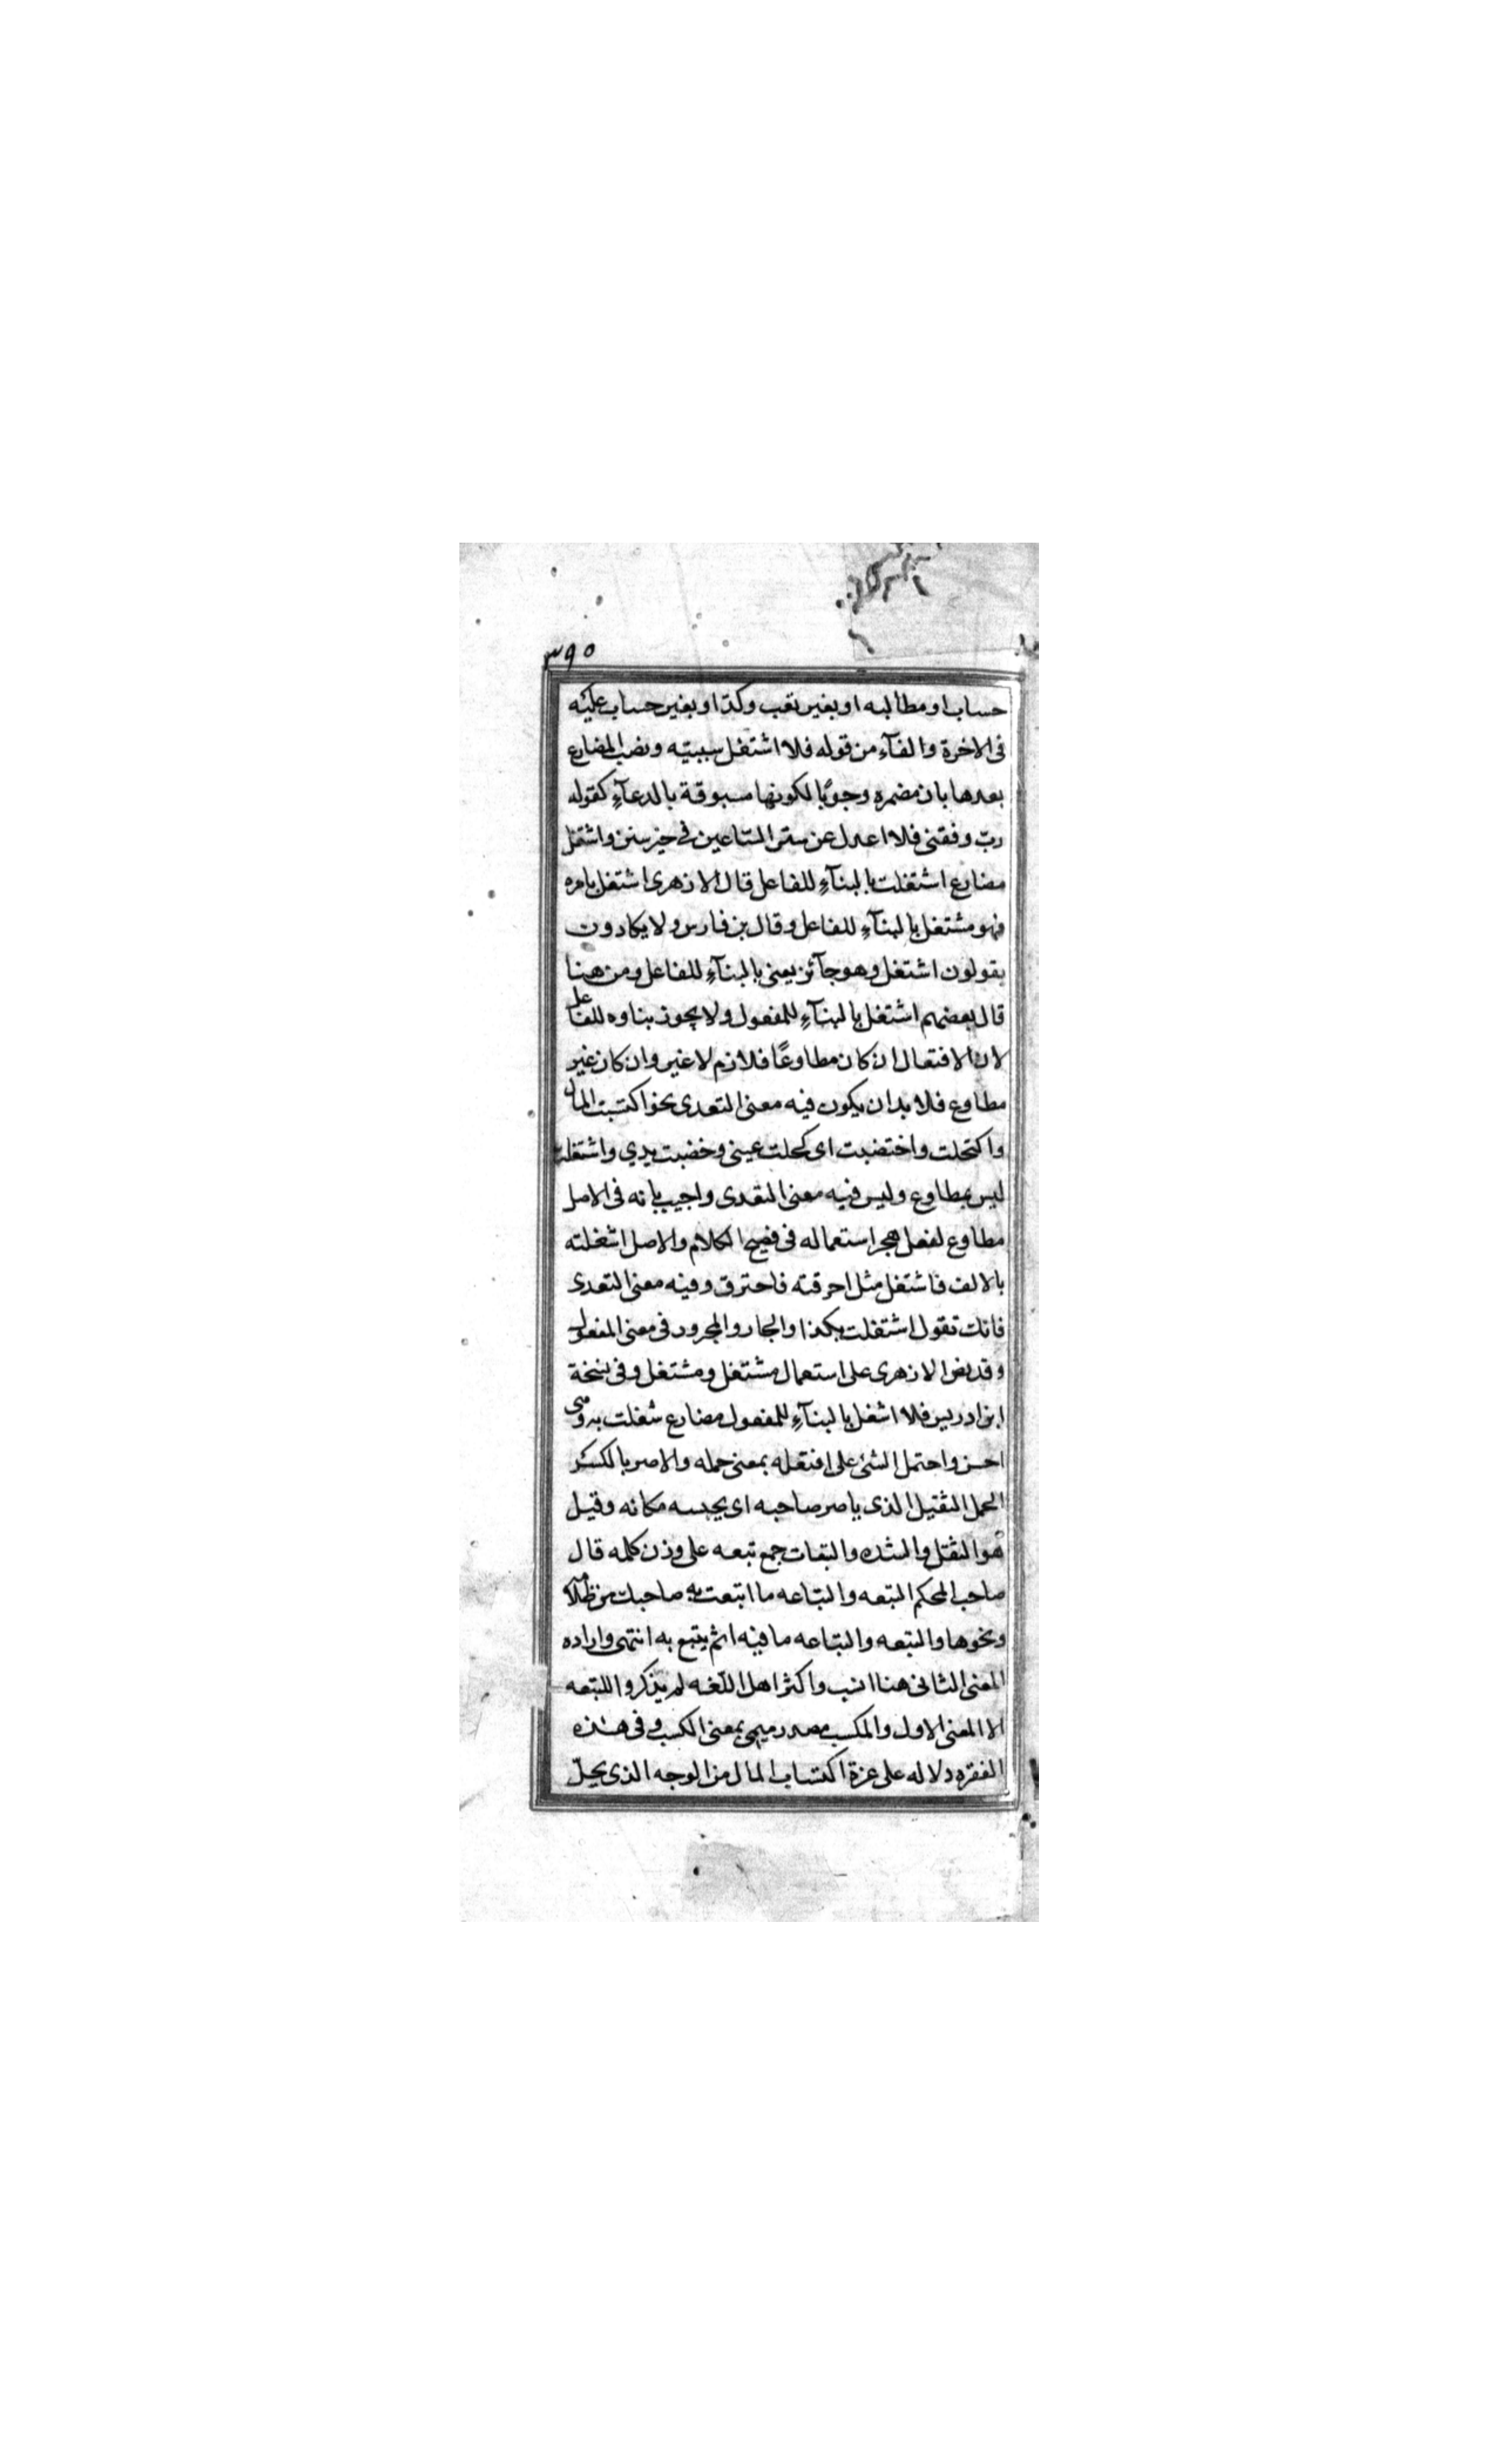 ٣٩٥
حساب او مطالبه او بغير تعب وكد او بغير حساب عليه
فى الاخرة والفآء من قوله فلا اشتغل سببيّه ونصب المضارع
بعدها بان مضمره وجوبًا لكونها مسبوقة بالدعآءِ كقوله
ربّ وفقنى فلا اعدل عن سنن الساعين في خير سنن واشتغل
مضارع اشتغلت بالبنآءِ للفاعل قال الازهرى اشتغل بامره
فهو مشتغل بالبنآءِ للفاعل وقال بن فارس ولا يكادون
يقولون اشتغل وهو جآئز يعنى بالبنآءِ للفاعل ومن هنا
قال بعضهم اشتغل بالبنآءِ للمفعول ولا يجوز بناوه للفاعل
لان الافتعال ان كان مطاوعًا فلازم لا غير وان كان غير
مطاوع فلا بد ان يكون فيه معنى التعدى نحو اكتسبت المال
واكتحلت واختضبت اى كحلت عينى وخضبت يدي واشتغلت
ليس بمطاوع وليس فيه معنى التعدى واجيب بانه فى الاصل
مطاوع لفعل هجر استعماله فى فصيح الكلام والاصل اشغلته
بالالف فاشتغل مثل احرقته فاحترق وفيه معنى التعدى
فانك تقول اشتغلت بكذا والجار والمجرور فى معنى المفعول
وقد نص الازهرى على استعمال مشتغل ومشتغل وفى نسخة
ابن ادريس فلا اشغل بالبنآءِ للمفعول مضارع شغلت به وهى
احسن واحتمل الشئ على افتعله بمعنى حمله والاصر بالكسر
الحمل الثقيل الذى ياصر صاحبه اى يحبسه مكانه وقيل
هو الثقل والشده والتبعات جمع تبعه على وزن كلمه قال
صاحب المحكم التبعه والتباعه ما اتبعت به صاحبك من ظلامه
ونحوها والتبعه والتباعه ما فيه اثم يتبع به انتهى واراده
المعنى الثانى هنا انسب واكثر اهل اللغه لم يذكروا للتبعه
الا المعنى الاول والمكسب مصدر ميمى بمعنى الكسب وفى هذه
الفقره دلاله على عزة اكتساب المال من الوجه الذى يحلّ